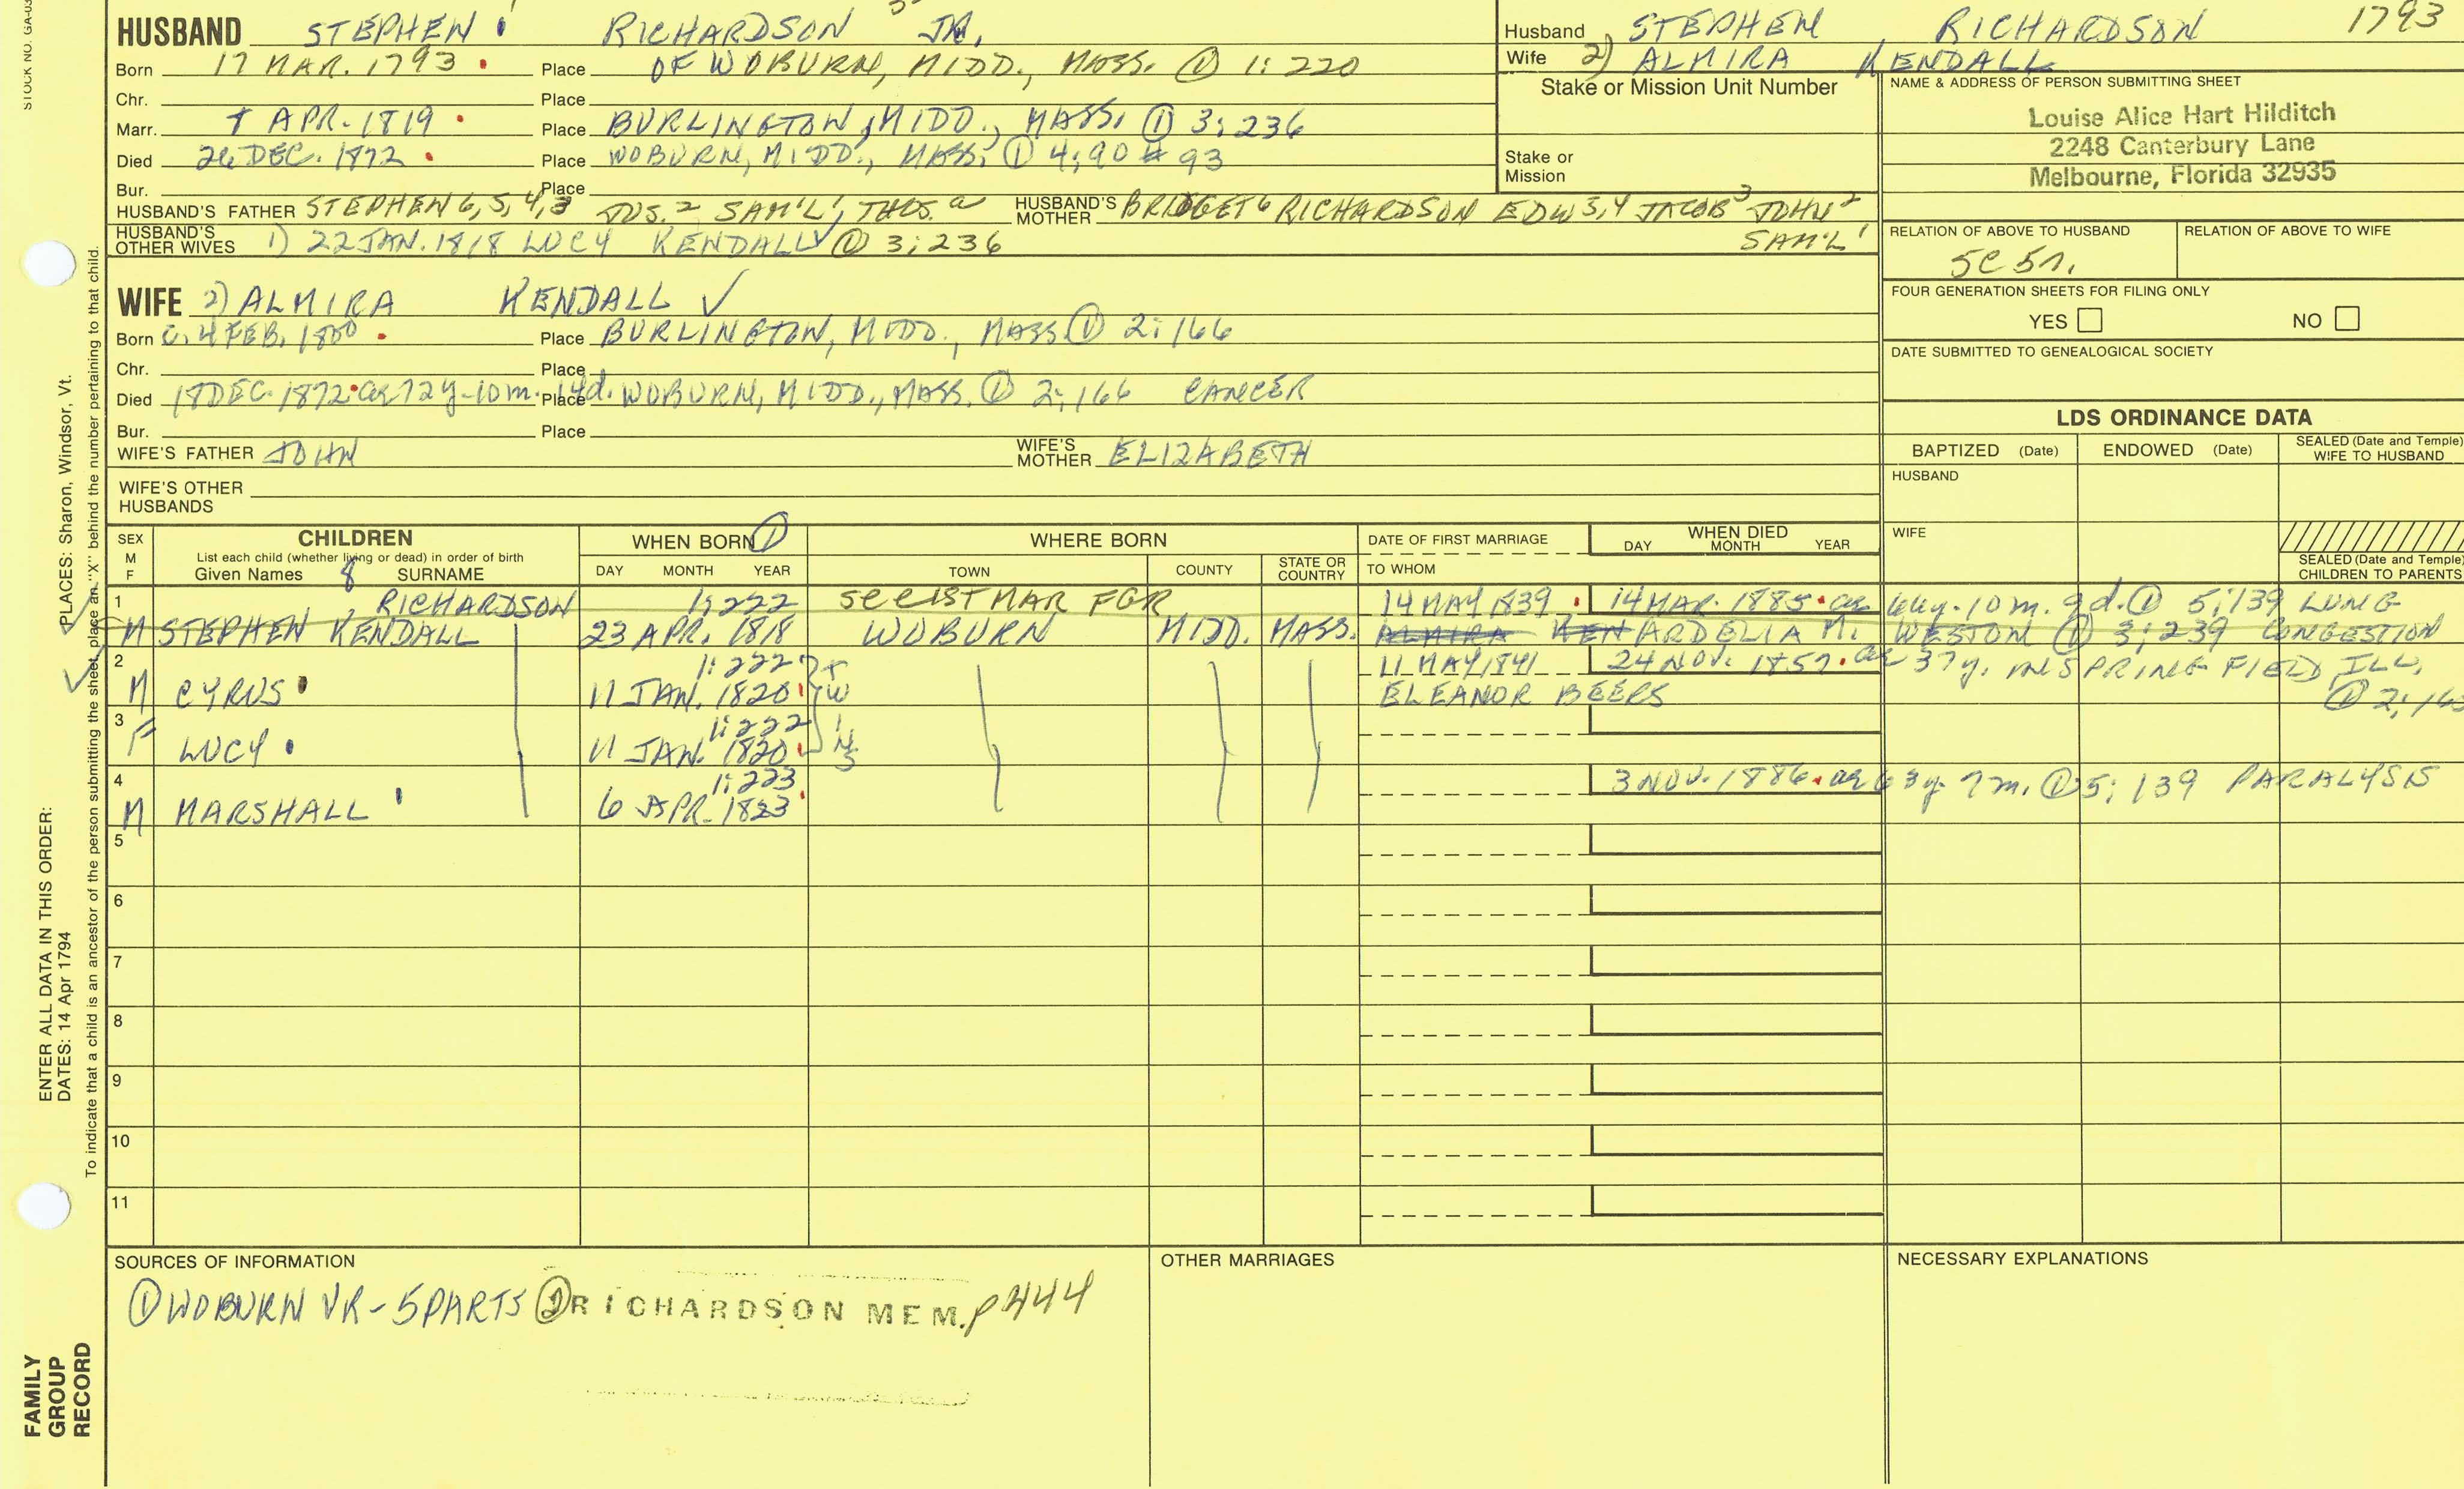 HUSBAND STEPHEN RICHARDSON JR.
Born 17 MAR. 1793 Place OF WOBURN, MIDD., MASS. ① 1:220
Chr. Place
Marr. APR. 1819 Place BURLINGTON, MIDD., MASS. ① 3:236
Died 26 DEC. 1872 Place WOBURN, MIDD., MASS. ① 4:90 # 93
Bur. Place
HUSBAND'S FATHER STEPHEN 6, 5, 4, 3 JOS. 2 SAM'L 1, THOS. a HUSBAND'S MOTHER BRIDGET 6 RICHARDSON EDW 5,4 JACOB 3 JOHN 2
SAM'L 1
HUSBAND'S OTHER WIVES 1) 22 JAN. 1818 LUCY KENDALL ① 3:236
WIFE 2) ALMIRA KENDALL ✓
Born C. 4 FEB. 1800 Place BURLINGTON, MIDD., MASS. ① 2:166
Chr. Place
Died 18 DEC. 1872 ae 72y-10m-14d. Place WOBURN, MIDD., MASS. ① 2:166 CANCER
Bur. Place
WIFE'S FATHER JOHN WIFE'S MOTHER ELIZABETH
WIFE'S OTHER HUSBANDS
Husband STEPHEN RICHARDSON 1793
Wife 2) ALMIRA KENDALL
Stake or Mission Unit Number
Stake or Mission
NAME & ADDRESS OF PERSON SUBMITTING SHEET
Louise Alice Hart Hilditch
2248 Canterbury Lane
Melbourne, Florida 32935
RELATION OF ABOVE TO HUSBAND RELATION OF ABOVE TO WIFE
5C 5r.
FOUR GENERATION SHEETS FOR FILING ONLY
YES NO
DATE SUBMITTED TO GENEALOGICAL SOCIETY
LDS ORDINANCE DATA
BAPTIZED (Date) ENDOWED (Date) SEALED (Date and Temple) WIFE TO HUSBAND
HUSBAND
WIFE
SEALED (Date and Temple) CHILDREN TO PARENTS
SEX M F CHILDREN WHEN BORN ① WHERE BORN DATE OF FIRST MARRIAGE WHEN DIED
List each child (whether living or dead) in order of birth
Given Names 8 SURNAME DAY MONTH YEAR TOWN COUNTY STATE OR COUNTRY TO WHOM DAY MONTH YEAR
1 RICHARDSON 1:222 SEE 1ST MAR FGR 14 MAY 1839 14 MAR. 1885 ae 66y-10m. 9d. ① 5:139 LUNG
M STEPHEN KENDALL 23 APR. 1818 WOBURN MIDD. MASS. ALMIRA KEN ARDELIA M. WESTON ① 3:239 CONGESTION
2 1:222 11 MAY 1841 24 NOV. 1857 ae 37y. IN SPRINGFIELD ILL,
M CYRUS 11 JAN. 1820 ELEANOR BEERS ① 2:16
3 1:222
F LUCY 11 JAN. 1820
TWINS
4 1:223 3 NOV. 1886 ae 63y 7m. ① 5:139 PARALYSIS
M MARSHALL 6 APR. 1823
5
6
7
8
9
10
11
SOURCES OF INFORMATION
① WOBURN VR - 5 PARTS ② RICHARDSON MEM. P 444
OTHER MARRIAGES
NECESSARY EXPLANATIONS
ENTER ALL DATA IN THIS ORDER:
DATES: 14 Apr 1794
PLACES: Sharon, Windsor, Vt.
To indicate that a child is an ancestor of the person submitting the sheet, place an "X" behind the number pertaining to that child.
FAMILY
GROUP
RECORD
STOCK NO. GA-03